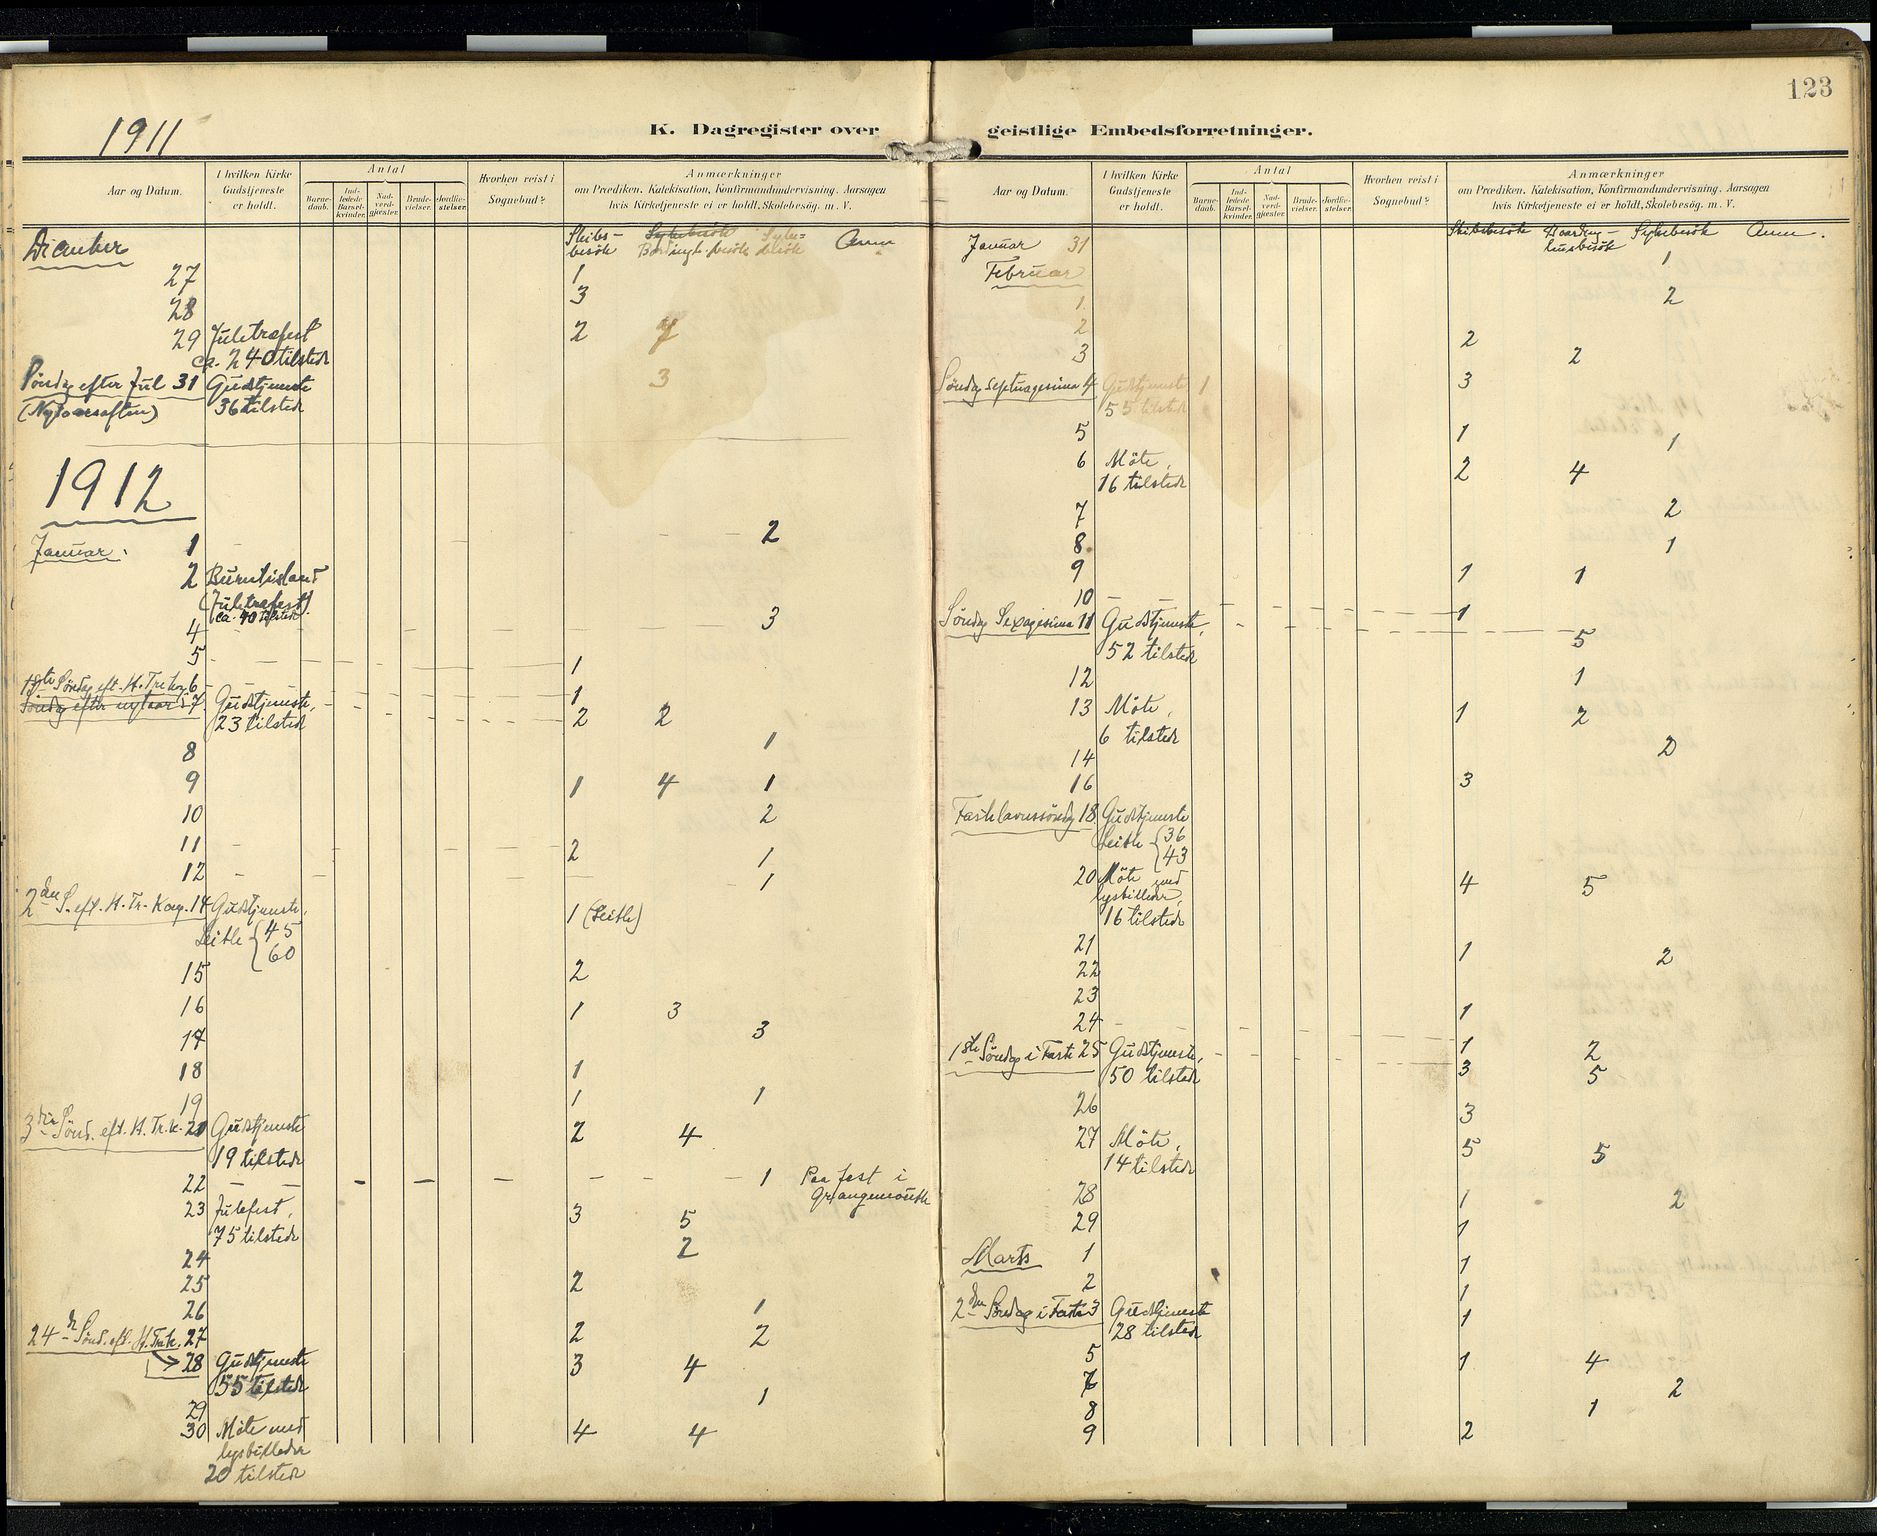 123
K. Dagregister over geistlige Embedsforretninger.
1911
Aar og Datum.
I hvilken Kirke
Gudstjeneste
er holdt.
Antal
Barne-
daab.
Ind-
ledede
Barsel-
kvinder.
Nad-
verd-
gjæster.
Brude-
vielser.
Jordfæ-
stelser.
Hvorhen reist i
Sognebud?
Anmærkninger
om Prædiken, Katekisation, Konfirmandundervisning. Aarsagen
hvis Kirketjeneste ei er holdt, Skolebesøg. m. V.
Skibs-
besök
Sykebesök
besök
Syke-
besök
Anm
27 1
28 3
29 Juletræfest 2
ca. 240 tilstede
Söndag efter Jul 31 Gudstjeneste 3
(Nytaarsaften) 36 tilstede
1912
Januar. 1 - 2
2 Burntisland
(Juletræfest)
ca. 40 tilstede
4 3
5 1
1ste Söndag eft. H. Tr. kg. 6 1
Söndag efter nytaar 7 Gudstjeneste, 2 2
23 tilstede
8 1
9 1 4 1
10 2
11 2 1
12 1
2den S. eft. H. Tr. Kong. 14 Gudstjeneste, 1 (Leith)
Leith { 45
60
15 2
16 1 3
17 3
18 1
19 1 1
3die Sönd. eft. H. Tr. k. 21 Gudstjeneste 2 4
19 tilstede
22 - - 1 Paa fest i
Grangemouth
23 Julefest, 3 5
75 tilstede
24 2
25 2
26 1
24 Sönd. eft. H. Tr. k. 27 2 2
28 Gudstjeneste 3 4
55 tilstede
29 1
30 Möte med 4 4
lysbilleder
20 tilstede
Aar og Datum.
I hvilken Kirke
Gudstjeneste
er holdt.
Antal
Barne-
daab.
Ind-
ledede
Barsel-
kvinder.
Nad-
verd-
gjæster.
Brude-
vielser.
Jordfæ-
stelser.
Hvorhen reist i
Sognebud?
Anmærkninger
om Prædiken, Katekisation, Konfirmandundervisning. Aarsagen
hvis Kirketjeneste ei er holdt, Skolebesøg. m. V.
Skibsbesök
husbesök
Sykebesök
Anm.
Januar 31 1
Februar
1 2
2 2
3 2
Söndag Septuagesima 4 Gudstjeneste 1 3
55 tilstede
5 1 1
6 Möte, 2 4
16 tilstede
7 2
8 1
9 1 1
10 - - 1
Söndag Sexagesima 11 Gudstjeneste, 5
52 tilstede
12 1
13 Möte, 1 2
6 tilstede
14 2
16 3
Fastelavnssöndag 18 Gudstjeneste
Leith { 36
43
20 Möte med 4 5
lysbilleder,
16 tilstede
21 1
22 2
23 1
24 - 1 2
1ste Söndag i Faste 25 Gudstjeneste, 3 5
50 tilstede
26 3
27 Möte, 5 5
14 tilstede
28 1 2
29 1
Marts 1 1
2 1
2den Söndag i Faste 3 Gudstjeneste 1
28 tilstede
5 1 4
2
8 1
9 2